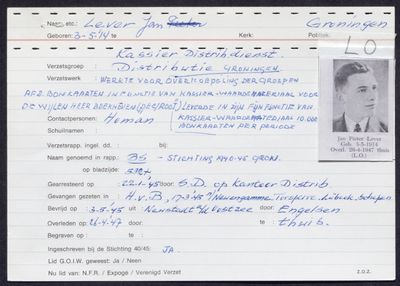 Naam, etc.: Lever Jan Pieter Groningen
Geboren: 3-5-'14 te: Kerk: Politiek:
LO
Kassier Distrib.dienst.
Verzetsgroep : Distributie Groningen.
Verzetswerk : WERKTE VOOR OVERKOEPELING DER GROEPEN
AF 2. BONKAARTEN IN FUNCTIE VAN KASSIER-WAARDEMATERIAAL VOOR
DE WIJLEN HEER LEVERDE IN ZIJN FUNCTIE VAN
Contactpersonen: Homan KASSIER-WAARDEMATERIAAL 10.000
Schuilnaam : BONKAARTEN PER PERIODE
Jan Pieter Lever
Geb. 3-5-1914
Overl. 26-4-1947 thuis
(L.O.)
Verzetsrapp. ingel. dd.: bij:
Naam genoemd in rapp.: BS - STICHTING 1940-45 GRON.
op bladzijde:
Gearresteerd op : 22-1-'45 door: S.D. op kantoor Distrib.
Gevangen gezeten in : H.v.B., 17-3-45 Neuengamme
Bevrijd op : 3-5-45 uit: Neustadt a/d Oostzee door: Engelsen
Overleden op : 26-4-47 te: door: thuis.
Begraven op : te:
Ingeschreven bij de Stichting 40/45: JA.
Lid G.O.I.W. geweest: Ja / Neen
Nu lid van: N.F.R. / Expogé / Verenigd Verzet
z.o.z.